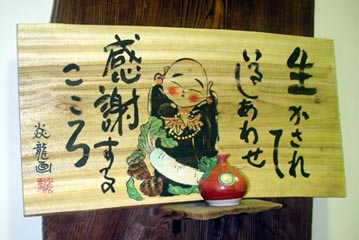 生かされて
いるしあわせ
感謝する
こころ
焱龍画